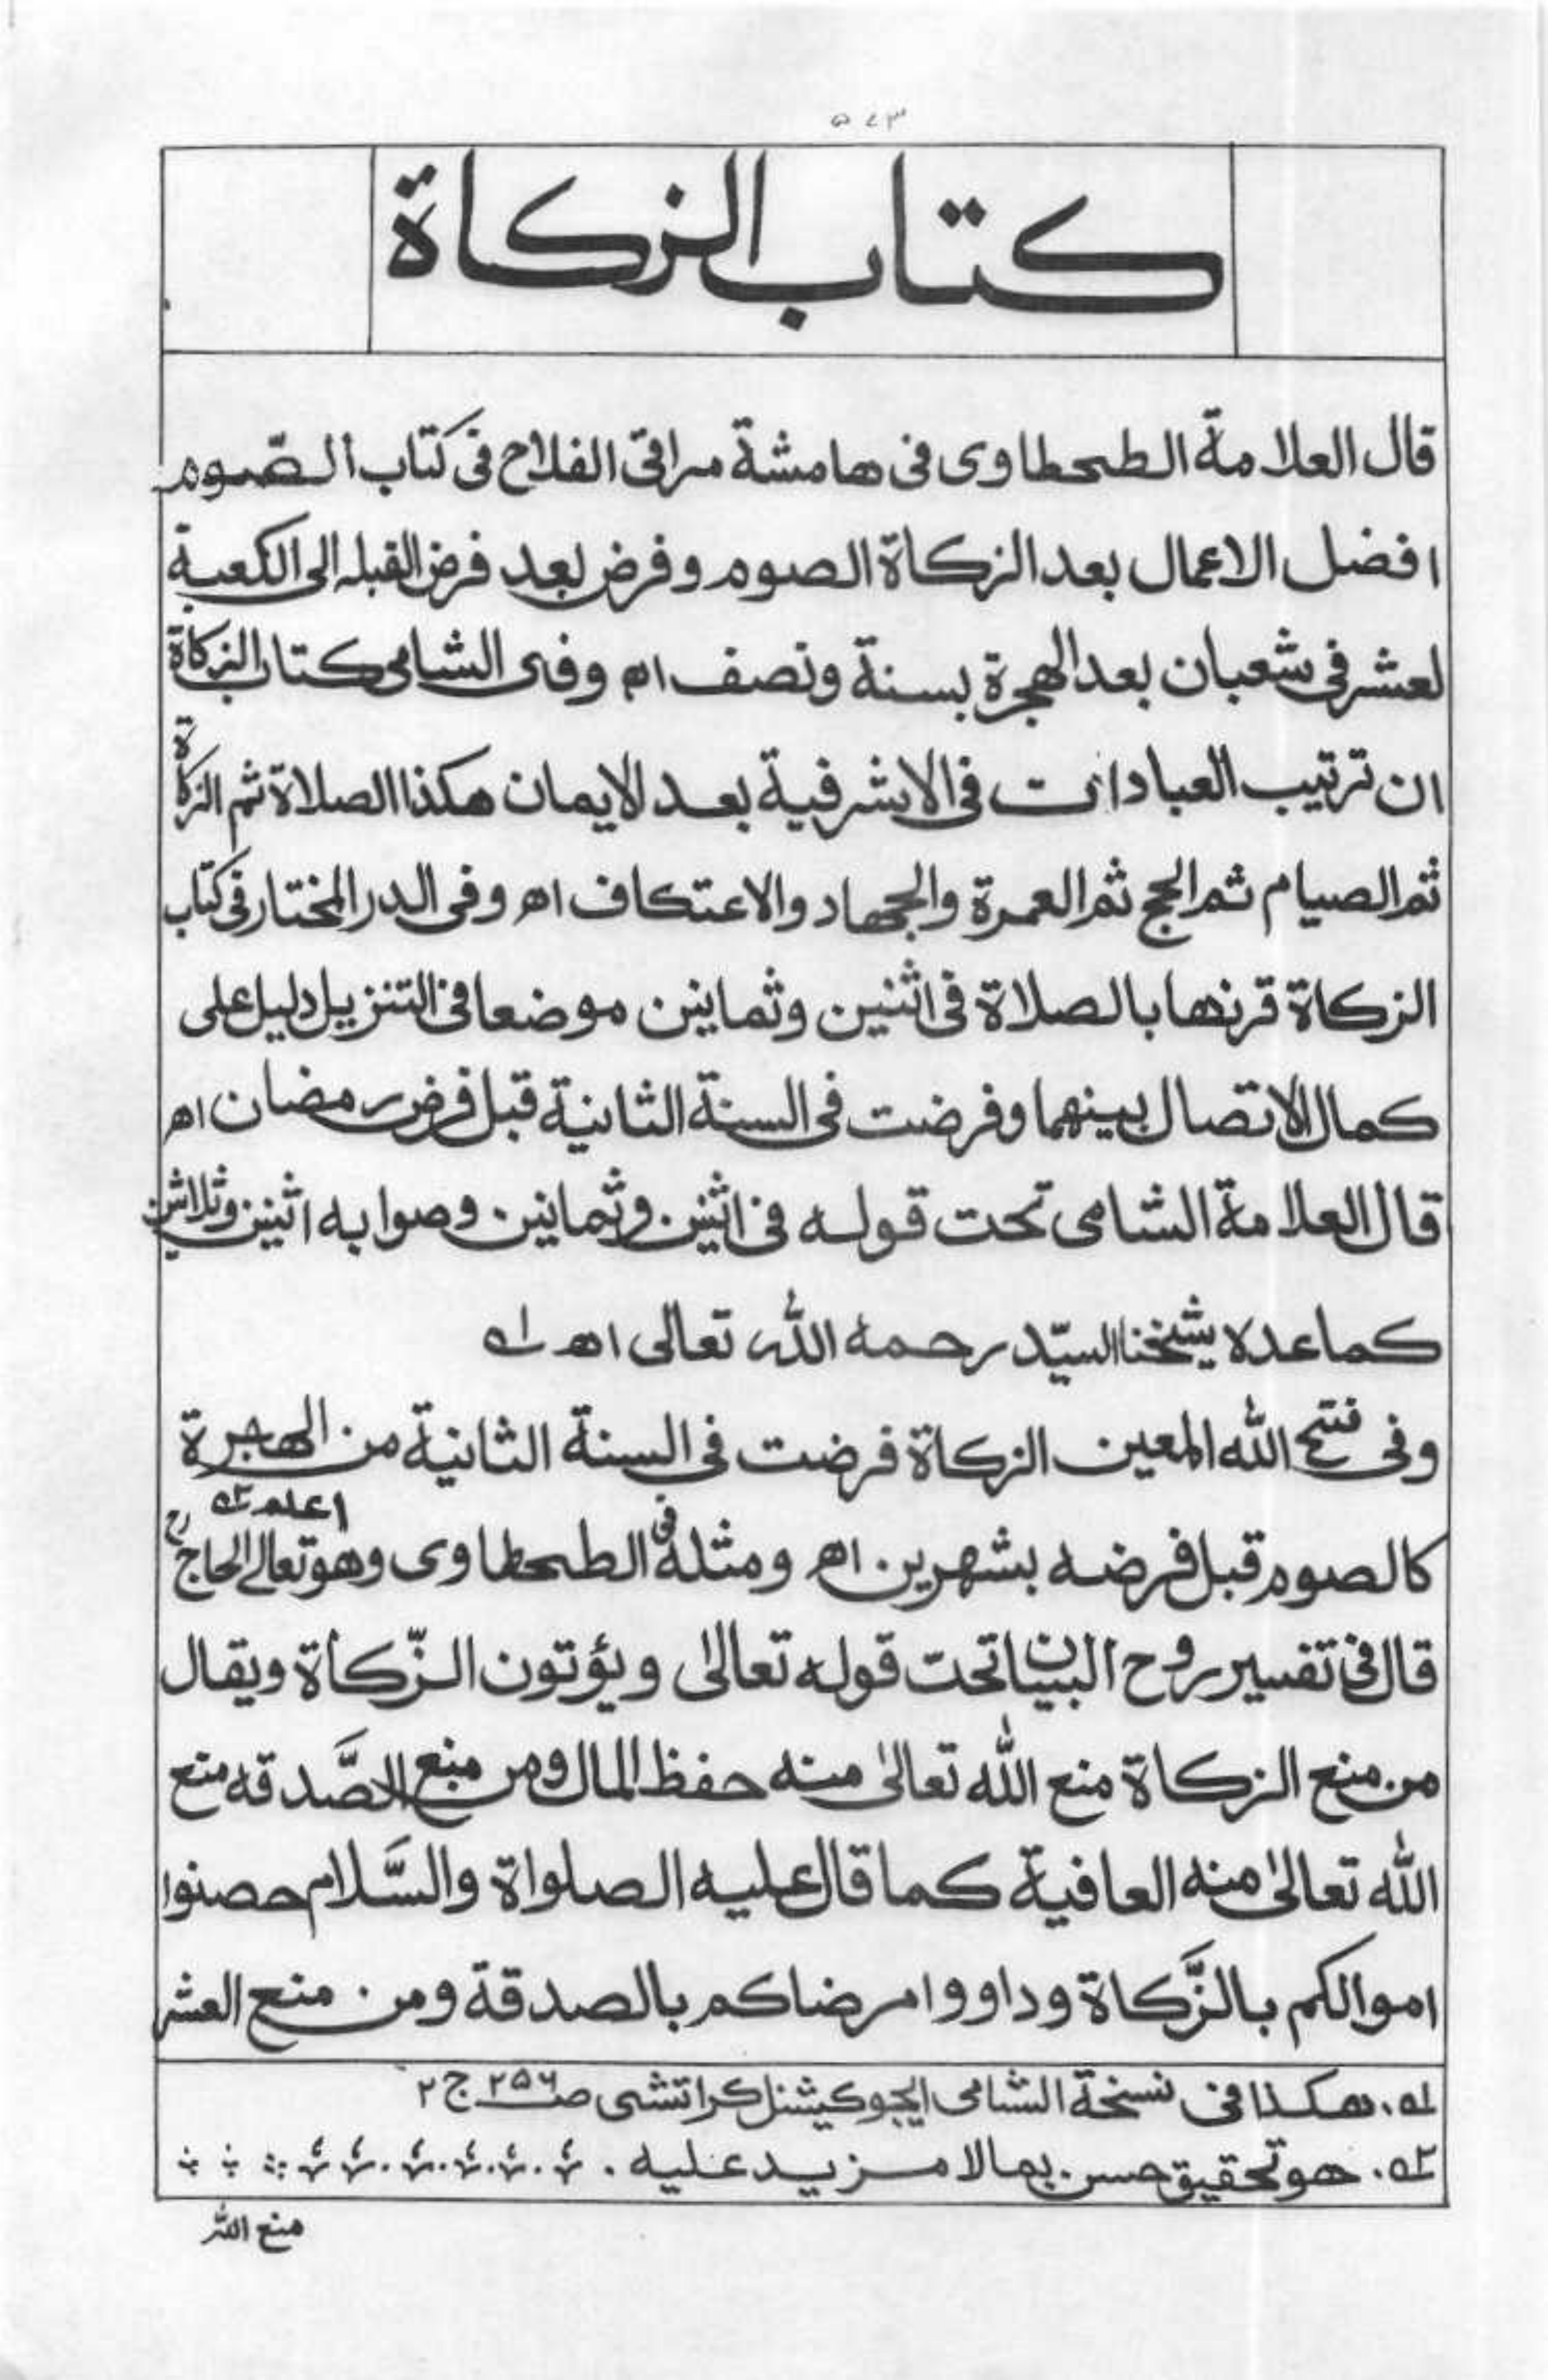 ۵۷۳
كتاب الزكاة
قال العلامة الطحطاوى فى هامشة مراقى الفلاح فى كتاب الصّوم
افضل الاعمال بعد الزكاة الصوم وفرض بعد فرض القبله الى الكعبة
لعشر فى شعبان بعد الهجرة بسنة ونصف اه وفى الشامى كتاب الزكاة
ان ترتيب العبادات فى الاشرفية بعد الايمان هكذا الصلاة ثم الزكاة
ثم الصيام ثم الحج ثم العمرة والجهاد والاعتكاف اه وفى الدر المختار فى كتاب
الزكاة قرنها بالصلاة فى اثنين وثمانين موضعا فى التنزيل دليل على
كمال الاتصال بينهما وفرضت فى السنة الثانية قبل فرض رمضان اه
قال العلامة الشامى تحت قوله فى اثنين وثمانين وصوابه اثنين وثلاثين
كما عده شيخنا السيّد رحمه الله تعالى اه ۱ه
وفى فتح الله المعين الزكاة فرضت فى السنة الثانية من الهجرة
كالصوم قبل فرضه بشهرين اه ومثله فى الطحطاوى وهو تعالى اعلم ۲ه الحاج
قال فى تفسير روح البيان تحت قوله تعالىٰ ويؤتون الزّكاة ويقال
من منع الزكاة منع الله تعالىٰ منه حفظ المال ومن منع الصَّدقه منع
الله تعالىٰ منه العافية كما قال عليه الصلواة والسَّلام حصنوا
اموالكم بالزَّكاة وداووا مرضاكم بالصدقة ومن منع العشر
۱ه. هكذا فى نسخة الشامى ايجوكيشنل كراتشى صـ۲۵۶ ج ۲
۲ه. هو تحقيق حسن بما لا مزيد عليه .
منع الله